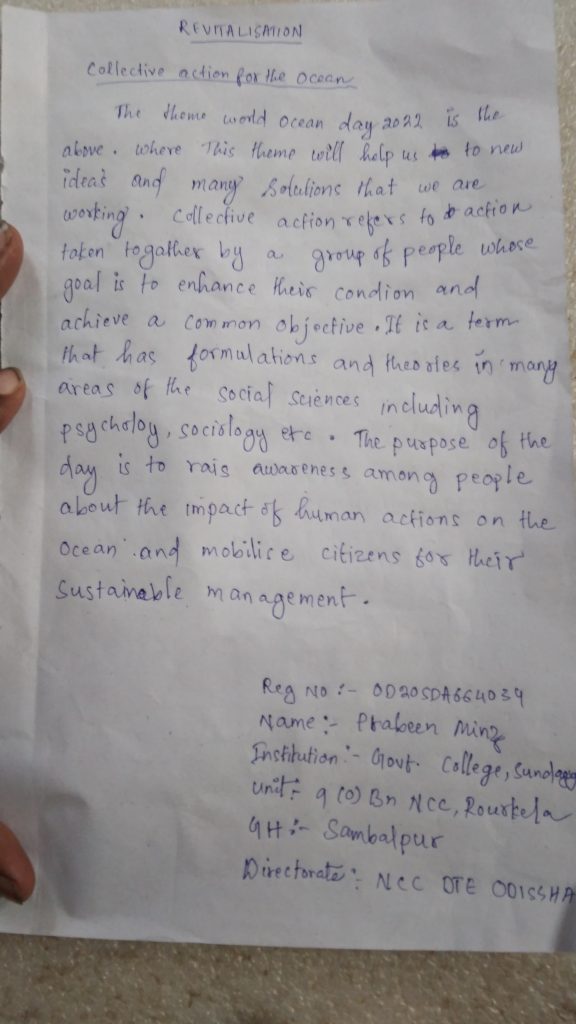 REVITALISATION
Collective action for the Ocean
The theme world ocean day 2022 is the
above. where This theme will help us to new
ideas and many Solutions that we are
working. Collective action refers to action
taken togather by a group of people whose
goal is to enhance their condion and
achieve a common objective. It is a term
that has formulations and theories in many
areas of the social sciences including
psycholoy, sociology etc. The purpose of the
day is to rais awareness among people
about the impact of human actions on the
Ocean and mobilise citizens for their
Sustainable management.
Reg No :- OD20SDA664039
Name :- Prabeen Minz
Institution :- Govt. College,
Unit :- 9 (O) Bn NCC, Rourkela
GH :- Sambalpur
Directorate :- NCC DTE ODISSHA